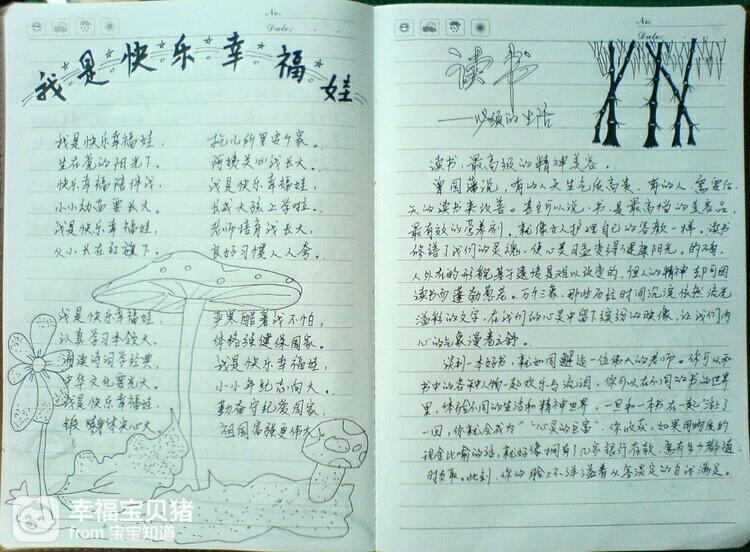 No.
Date.
我是快乐幸福娃
我是快乐幸福娃，
生在党的阳光下。
快乐幸福陪伴我，
小小幼苗要长大。
我是快乐幸福娃，
从小长在红旗下。
托儿所里安个家。
阿姨关心我长大。
我是快乐幸福娃，
长大大班上学啦。
老师培育我长大，
良好习惯人人夸。
我是快乐幸福娃，
认真学习本领大。
诵读诗词学经典，
中华文化要光大。
我是快乐幸福娃，
锻炼身体决心大。
严寒酷暑我不怕，
体格强健保国家。
我是快乐幸福娃，
小小年纪志向大。
勤奋守纪爱国家，
祖国富强更伟大。
幸福宝贝猪
from 宝宝知道
No.
Date:
读书
——必须的生活
读书，最高级的精神美容。
曾国藩说，有的人天生气质高贵，有的人，需要后
天的读书来改善。甚至可以说，书，是最高档的美容品，
最有效的营养剂。就像女人护理自己的容颜一样，读书
修谱了我们的灵魂，使心灵日益变得健康阳光。的确，
人外在的形貌基于遗传是难以改变的，但人的精神却可因
读书而蓬勃葱茏。万千气象，那些历经时间沉淀依然流光
溢彩的文字，在我们的心灵中留下缤纷的映像，让我们内
心的气象漫卷云舒。
读到一本好书，就如同邂逅一位伟大的老师。你可以和
书中的各种人物一起欢乐与流泪，你可以在不同的书的世界
里，体验不同的生活和精神世界。一旦和一本书在一起"活"了
一回，你就会成为"心灵的巨富"。你收获，如果用物质的
现金比喻的话，就好像拥有了几家银行存款，想有多少都随
时支取。此刻，你的脸上不洋溢着从容淡定的自我满足。